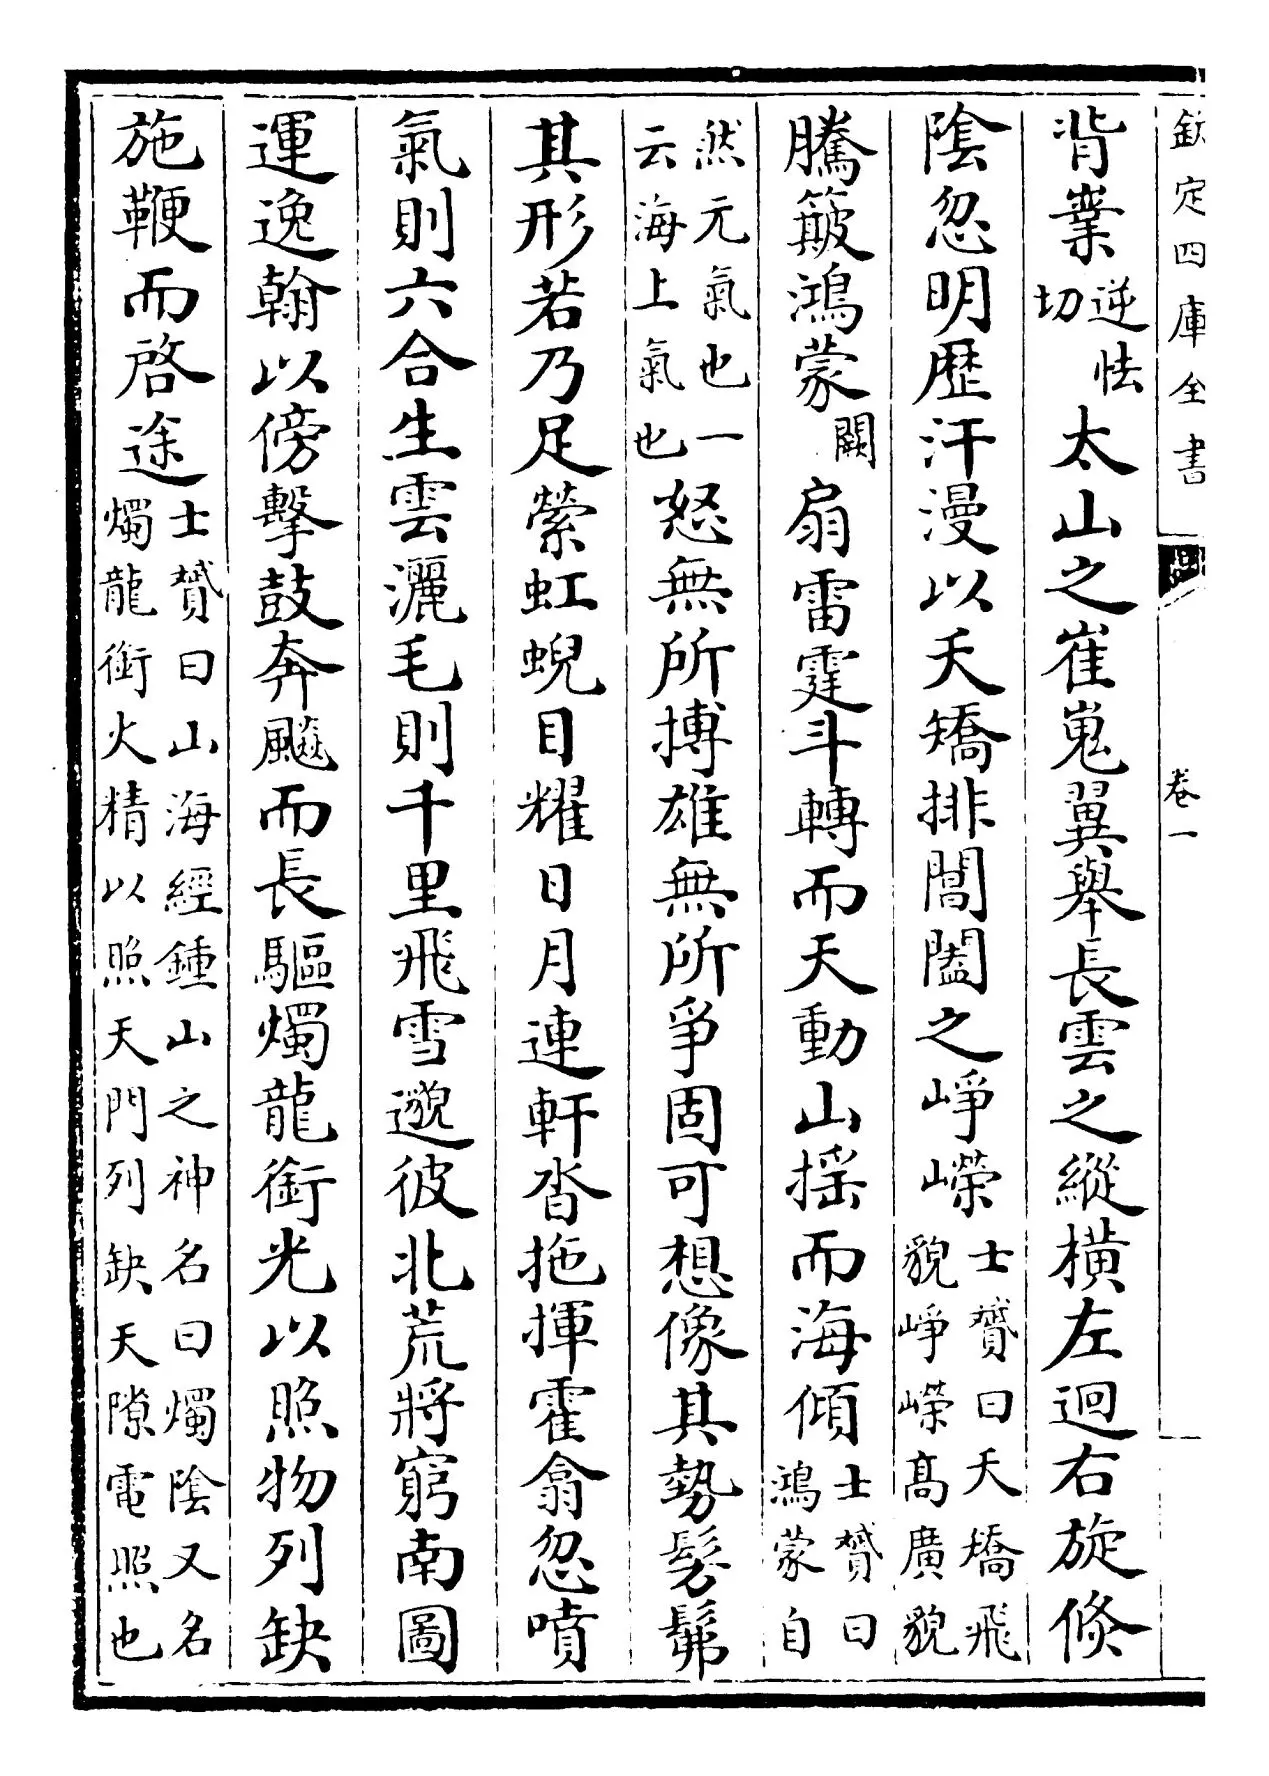 欽定四庫全書
卷一
背業逆怯切太山之崔嵬翼舉長雲之縱橫左迴右旋倐
陰忽明歴汗漫以夭矯排閶闔之崢嶸士贇曰夭矯飛貌崢嶸髙廣貌
騰簸鴻蒙闕扇雷霆斗轉而天動山揺而海傾士贇曰鴻蒙自
然元氣也一云海上氣也怒無所搏雄無所爭固可想像其勢髣髴
其形若乃足縈虹蜺目耀日月連軒沓拖揮霍翕忽噴
氣則六合生雲灑毛則千里飛雪邈彼北荒將窮南圖
運逸翰以傍擊鼓奔飈而長驅燭龍銜光以照物列缺
施鞭而啓途士贇曰山海經鍾山之神名曰燭陰又名燭龍銜火精以照天門列缺天隙電照也